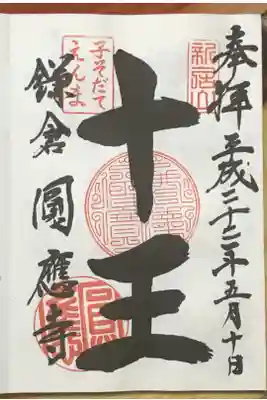 新居山
奉拝 平成二十二年五月十日
十王
子そだて
えんま
鎌倉 圓應寺